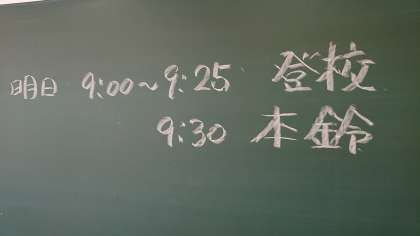 明日 9:00~9:25 登校
9:30 本鈴